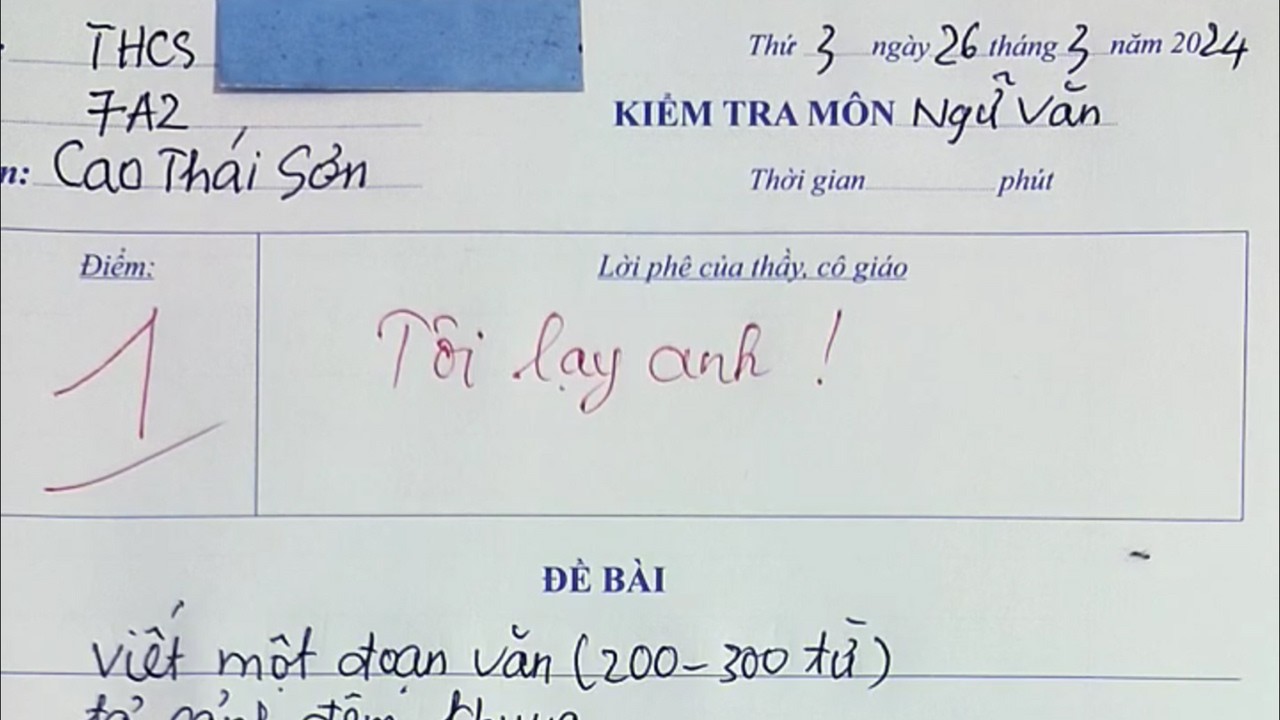 THCS
Thứ 3 ngày 26 tháng 3 năm 2024
7A2
KIỂM TRA MÔN Ngữ Văn
n: Cao Thái Sơn
Thời gian phút
Điểm:
Lời phê của thầy, cô giáo
1
Tôi lạy anh !
ĐỀ BÀI
viết một đoạn văn (200-300 từ)
tả cảnh đêm khuya